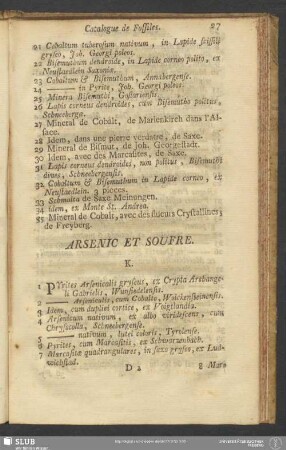 Catalogue de Fossiles. 27
21 Cobaltum tuberosum nativum, in Lapide scissili
griseo, Joh. Georgi polens.
22 Bisemutum dendroide, in Lapide corneo polito, ex
Neustaedtlein Saxoniæ.
23 Cobaltum & Bisemuthum, Annabergense.
24 —— in Pyrite, Joh. Georgi polens.
25 Minera Bisemuthi, Gisloviensis.
26 Lapis corneus dendroides, cum Bisemutho politus,
Schneeberga.
27 Mineral de Cobalt, de Marienkirch dans l'Al-
sace.
28 Idem, dans une pierre verdatre, de Saxe.
29 Mineral de Bismut, de Joh. Georgestadt.
30 Idem, avec des Marcasites, de Saxe.
31 Lapis corneus dendroides, non politus, Bisemuthi
dives, Schneebergensis.
32 Cobaltum & Bisemuthum in Lapide corneo, ex
Neustaedlein. 3 pieces.
33 Schmalta de Saxe Meinongen.
34 idem, ex Monte St. Andreæ.
35 Mineral de Cobalt, avec des fleurs Crystallines;
de Freyberg.
ARSENIC ET SOUFRE.
K.
1 PYrites Arsenicalis gryseus, ex Crypta Archange-
li Gabrielis, Wunsidelensis.
2 —— Arsenicalis, cum Cobalto, Weickensteinensis.
3 Idem, cum duplici cortice, ex Voigtlandia.
4 Arsenicum nativum, ex albo viridescens, cum
Chrysocolla, Schneebergense.
5 —— nativum, lutei coloris, Tyrolense.
6 Pyrites, cum Marcasitis, ex Schwartzenbach.
7 Marcasitæ quadrangulares, in saxo gryseo, ex Lud-
wichstad.
D 2 8 Marc